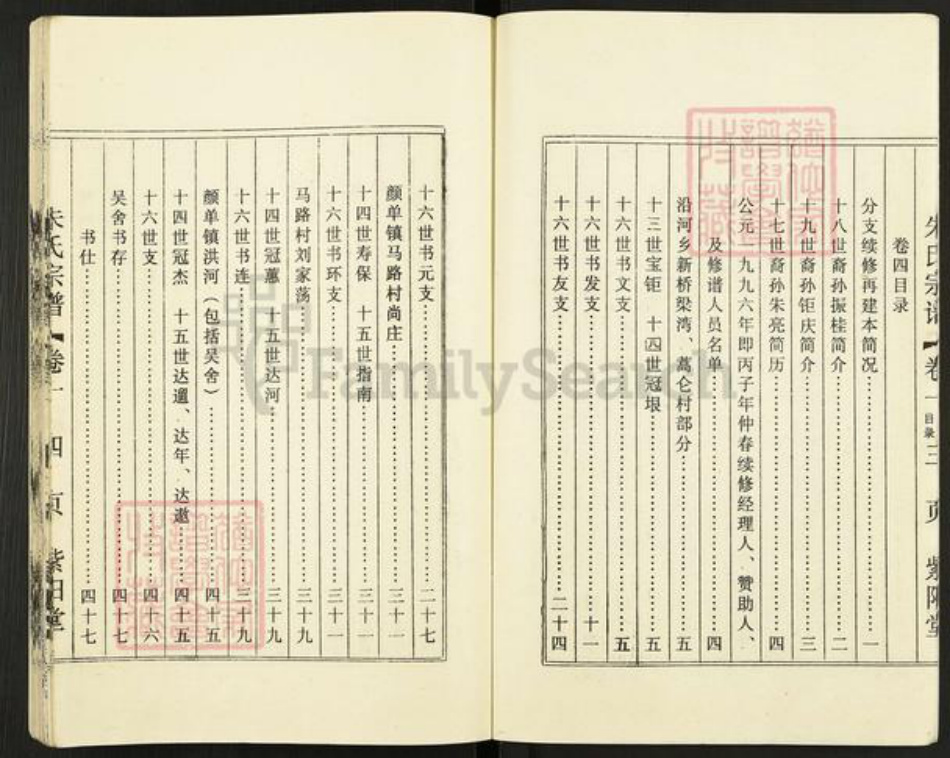 朱氏宗谱【卷一 目录 三 页 紫阳堂
卷四目录
分支续修再建本简况……一
十八世裔孙振桂简介……二
十九世裔孙钜庆简介……三
十七世裔孙朱亮简历……四
公元一九九六年即丙子年仲春续修经理人、赞助人、
及修谱人员名单……四
沿河乡新桥梁湾、蒿仑村部分……五
十三世宝钜 十四世冠垠……五
十六世书文支……五
十六世书发支……十一
十六世书友支……二十四
十六世书元支……二十七
颜单镇马路村尚庄……三十一
十四世寿保 十五世指南……三十一
十六世书环支……三十一
马路村刘家荡……三十九
十四世冠蕙 十五世达河……三十九
十六世书连……三十九
颜单镇洪河（包括吴舍）……四十五
十四世冠杰 十五世达暹、达年、达遨……四十五
十六世支……四十六
吴舍书存……四十七
书仕……四十七
朱氏宗谱【卷一 四 页 紫阳堂
FamilySearch